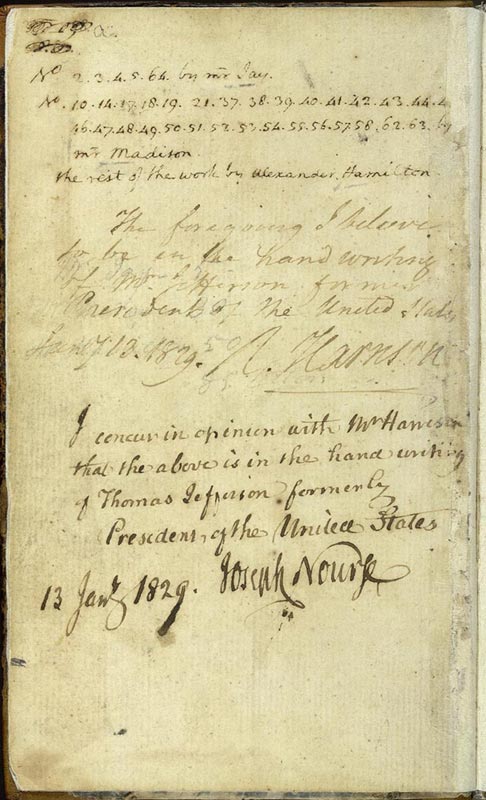 No 2. 3. 4. 5. 64. by mr Jay.
No. 10. 14. 17. 18. 19. 21. 37. 38. 39. 40. 41. 42. 43. 44. 4
46. 47. 48. 49. 50. 51. 52. 53. 54. 55. 56. 57. 58. 62. 63. by
mr Madison.
the rest of the work by Alexander Hamilton
The foregoing I believe
to be in the hand writing
of Mr Jefferson former
President of the United States
Jany 13. 1829. Harrison
I concur in opinion with Mr Harrison
that the above is in the hand writing
of Thomas Jefferson formerly
President of the United States
13 Jany 1829. Joseph Nourse